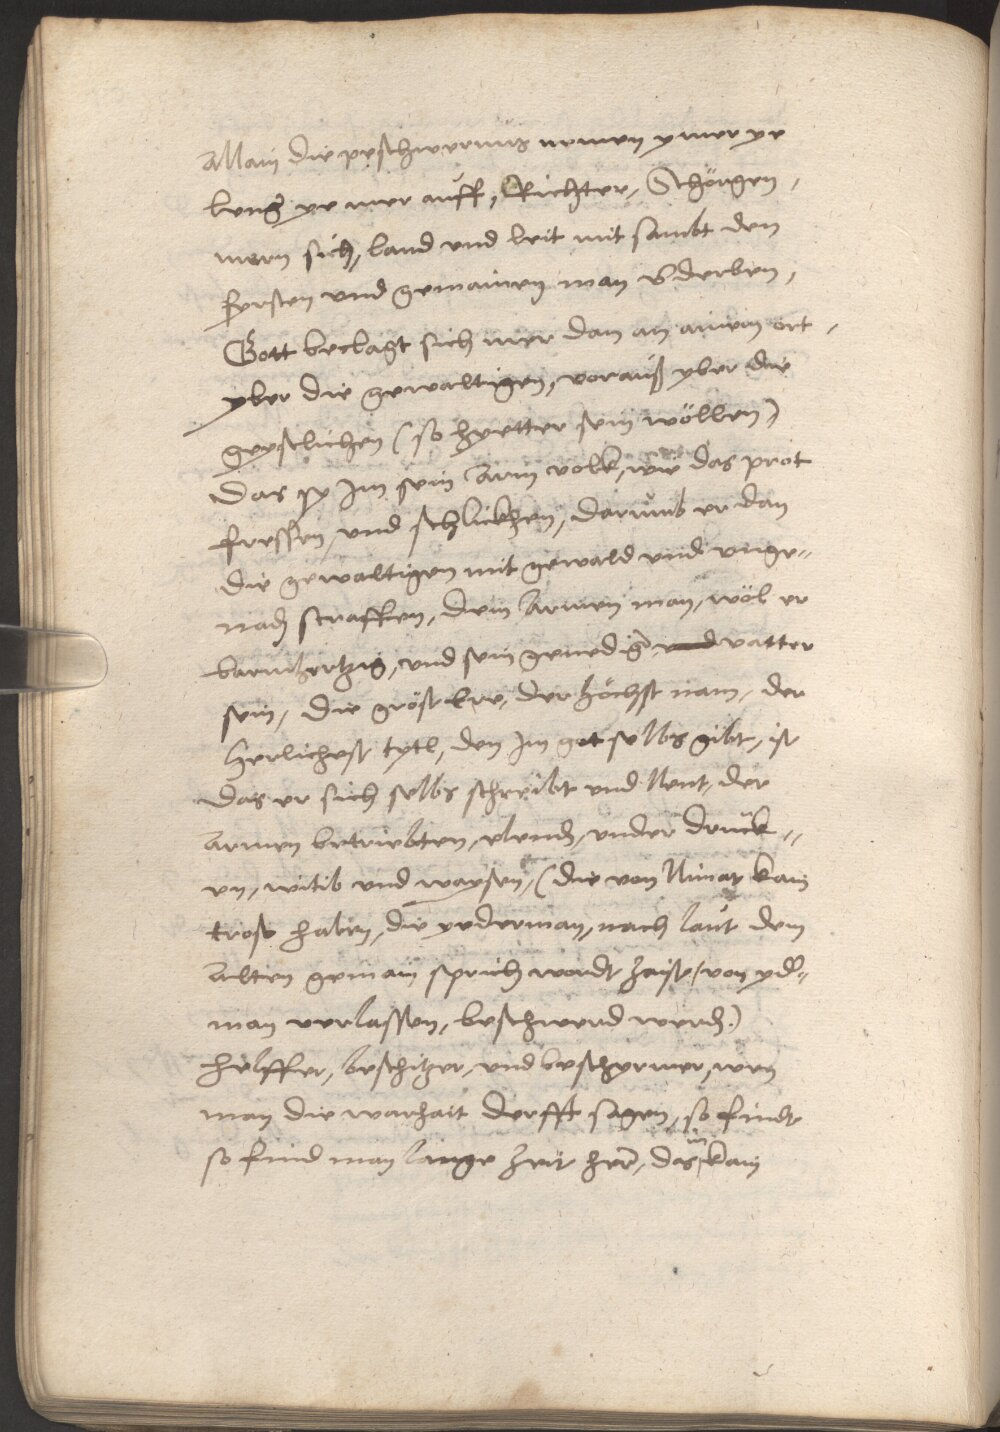 Allain die peschwernus nemen ymer ye
leng ye mer auff, Richter, Schörgen,
mern sich, land und leit mit sambt den
fyrsten und gemainen man v̄derben,
Gott beclagt sich mer dan an ainem ort,
yber die gewaltigen, vorauß yber die
geystlichen (so hyetter sein wöllen)
das sy Im sein Arm volk, wie das prot
fressen, und schlickhen, darumb er dan
die gewaltigen mit gewald und unge-
nad straffen, dem Armen man, wöl er
barmhertzig, und sein genedigr̄ vatter
sein, die gröst ere, der höchst nam, der
herlichest tytl, den Im got selbs gibt, ist
das er sich selbs schreibt und Nent, der
Armen betriebten, elend, under druck-
en, witib und waysen, (die von Nimat kain
trost haben, die yederman, nach laut dem
Alten gemain sprichwordt haist, von yd-
man verlassen, beschwerd werd.)
helffer, beschitzer, und beschyrmer, wen
man die warhait derfft sagen, so findt
so find man lange zeit her, das in kain